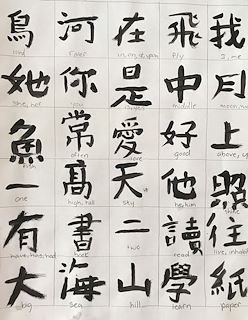 鳥 河 在 飛 我
bird river in, on, at, upon fly I, me
她 你 是 中 月
she, her you is, yes middle moon, mo
魚 常 愛 好 上
fish often love good above, up
一 高 天 他 照
one high, tall sky he, him
有 書 二 讀 住
have, has, had book two read live, inhabit
大 海 山 學 紙
big sea hill learn paper